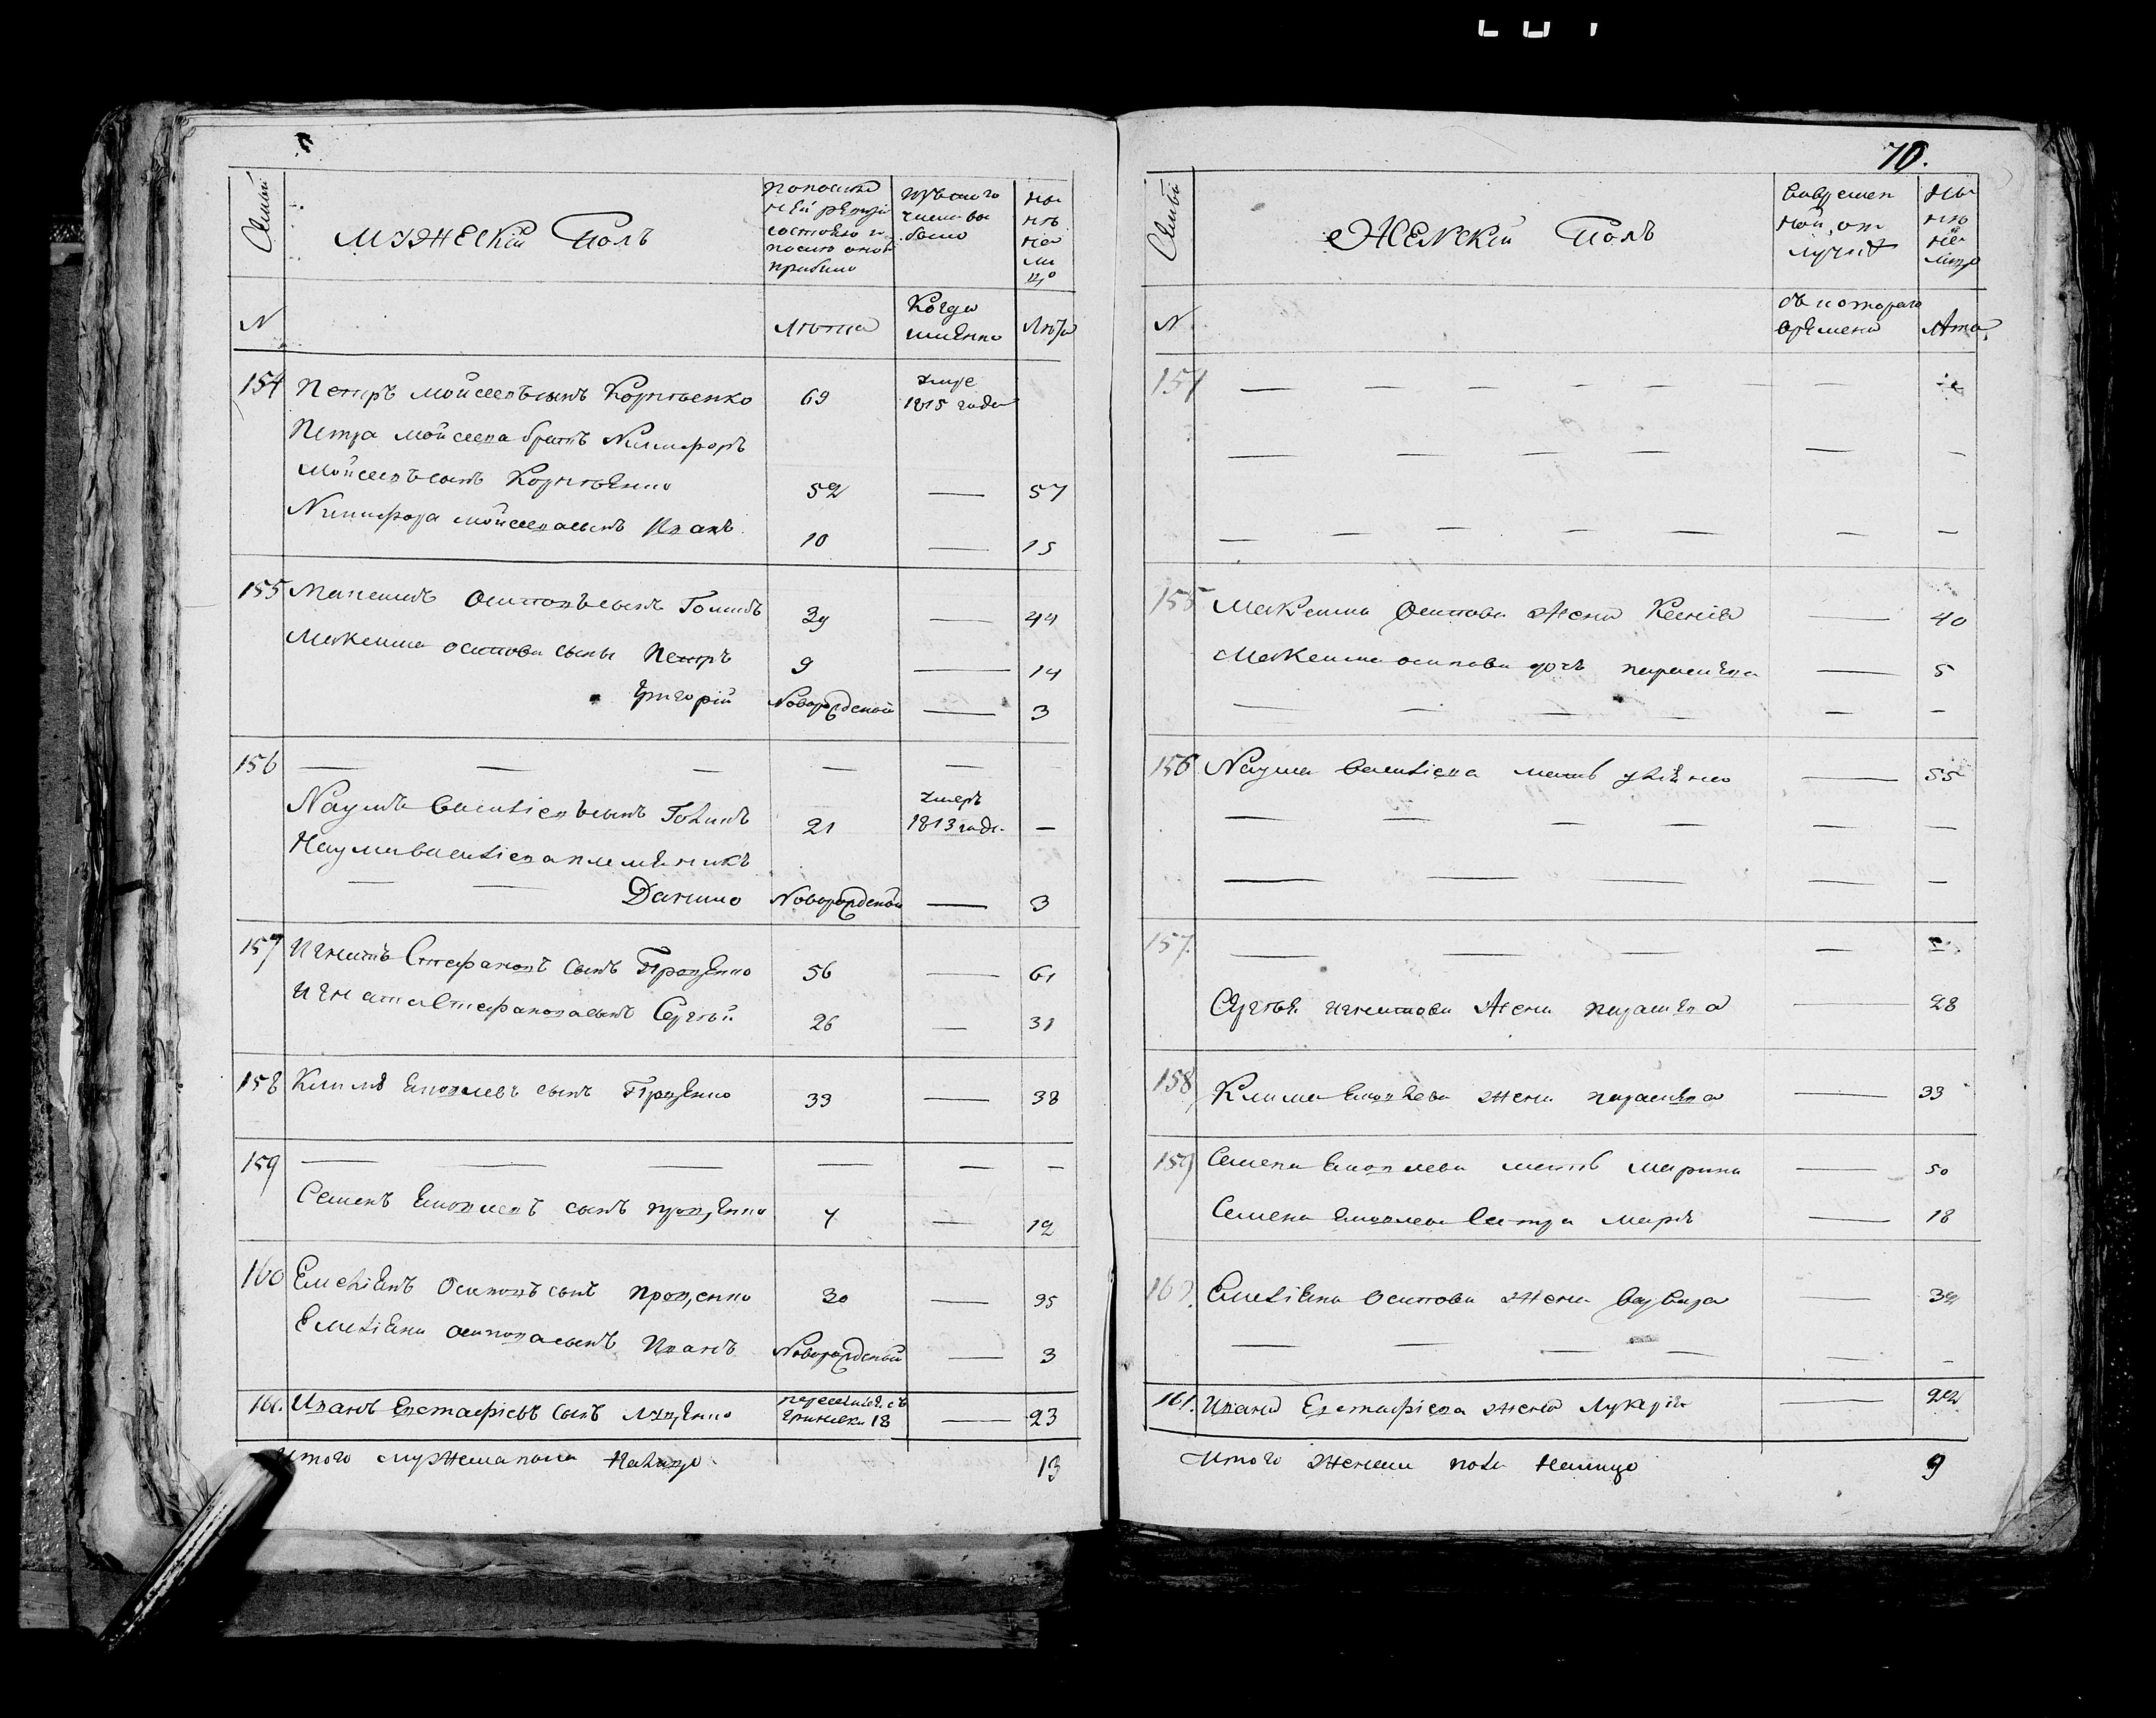 Семьи
Мужескій Полъ
По последней ревизіи состояло и после оной прибыло
Изъ того числа выбыло
Ныне на лицо
N
Лета
Когда именно
Лета
154 Петръ Мойсеевъ сынъ Корнѣенко 69 Умре 1815 года
Петра Мойсеева братъ Никифоръ
Мойсеевъ сынъ Корнѣенко 52 — 57
Никифора Мойсеева сынъ Иванъ 10 — 15
155 Максимъ Осиповъ сынъ 39 — 44
Максима Осипова сыны Петръ 9 — 14
Григорій Новорожденой — 3
156 — — — — — —
Наумъ Василіевъ сынъ 21 Умеръ 1813 года —
Наума Василіева племеникъ
— — Данило Новорожденой — 3
157 Игнатъ Стефановъ сынъ Проценко 56 — 61
Игната Стефанова сынъ Сергѣй 26 — 31
158 Климъ сынъ Проценко 33 — 38
159 — — — — — —
Семенъ сынъ Проценко 7 — 12
160 Емеліянъ Осиповъ сынъ Проценко 30 — 35
Емеліяна Осипова сынъ Иванъ Новорожденой — 3
161. Иванъ Евстафіевъ сынъ 18 — 23
Итого мужеска пола на лицо 13
70.
Семьи
Женскій Полъ
Во временной отлучке
Ныне на лицо
N
Съ котораго времени
Лета
154 — — — — — — —
— — — — — —
— — — — — — —
155 Максима Осипова жена Ксенія — 40
Максима Осипова дочь Параскева — 5
— — — — — —
156 Наума Василіева мать Уліяна — 55
— — — — — —
— — — — —
157. — — — — —
Сергѣя Игнатова жена Параскева — 28
158 Клима жена Параскева — 33
159 Семена мать Марина — 50
Семена сестра — 18
160. Емеліяна Осипова жена Варвара — 34
— — — — — —
161. Ивана Евстафіева жена Лукерія — 22
Итого женска пола на лицо 9